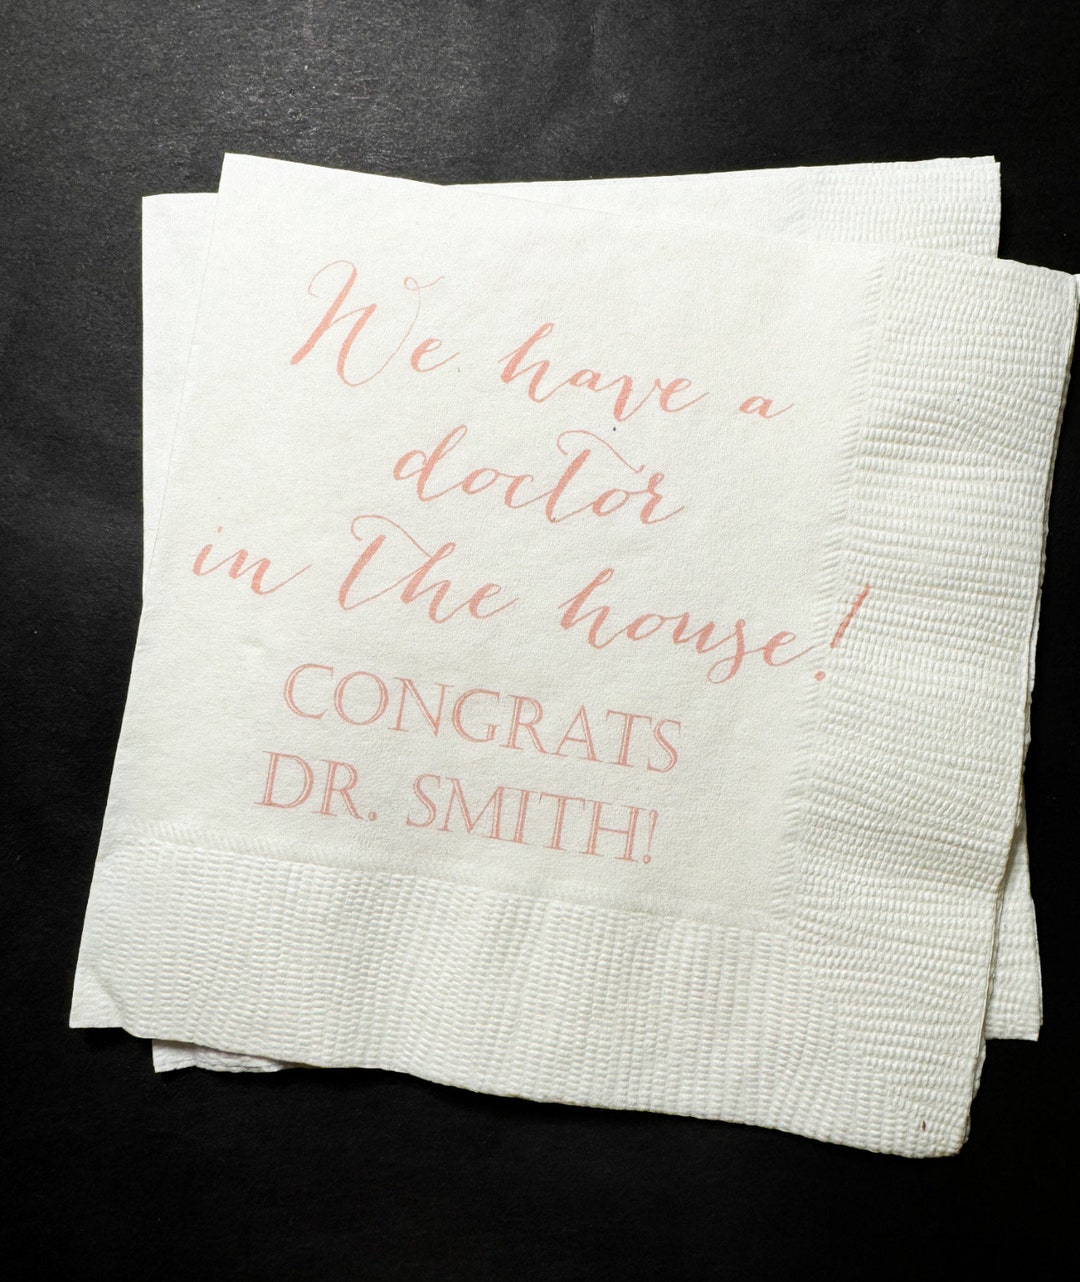 We have a
doctor
in the house!
CONGRATS
DR. SMITH!